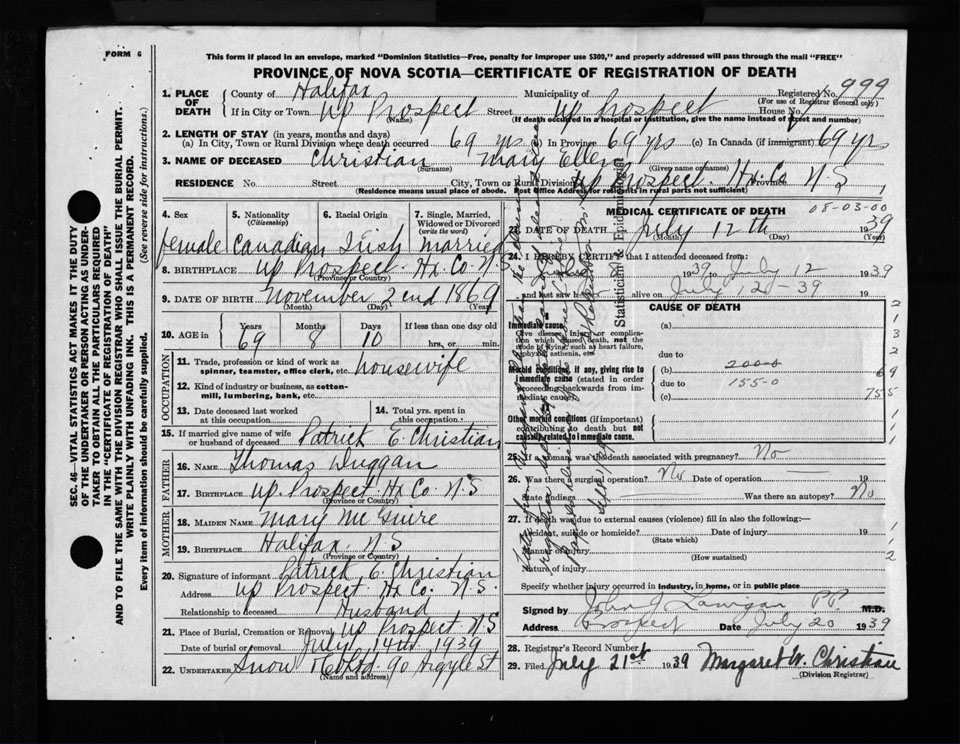 FORM 6
This form if placed in an envelope, marked "Dominion Statistics—Free, penalty for improper use $300," and properly addressed will pass through the mail "FREE"
PROVINCE OF NOVA SCOTIA—CERTIFICATE OF REGISTRATION OF DEATH
SEC. 46—VITAL STATISTICS ACT MAKES IT THE DUTY
OF THE UNDERTAKER OR PERSON ACTING AS UNDER-
TAKER TO OBTAIN ALL THE PARTICULARS REQUIRED
IN THE "CERTIFICATE OF REGISTRATION OF DEATH"
AND TO FILE THE SAME WITH THE DIVISION REGISTRAR WHO SHALL ISSUE THE BURIAL PERMIT.
WRITE PLAINLY WITH UNFADING INK. THIS IS A PERMANENT RECORD.
Every item of information should be carefully supplied. (See reverse side for instructions.)
1. PLACE OF DEATH
County of Halifax Municipality of Registered No. 999
(For use of Registrar General only)
If in City or Town Up Prospect Street Up Prospect House No.
(Name) (If death occurred in a hospital or institution, give the name instead of street and number)
2. LENGTH OF STAY (in years, months and days)
(a) In City, Town or Rural Division where death occurred 69 yrs (b) In Province 69 yrs (c) In Canada (if immigrant) 69 yrs
3. NAME OF DECEASED Christian Mary Ellen
(Surname) (Given name or names)
RESIDENCE No. Street City, Town or Rural Division Up Prospect. Hx. Co Province N S
(Residence means usual place of abode. Post Office Address for residents in rural parts not sufficient)
4. Sex
female
5. Nationality (Citizenship)
Canadian
6. Racial Origin
Irish
7. Single, Married, Widowed or Divorced (write the word)
Married
8. BIRTHPLACE Up Prospect. Hx Co. N S
(Province or Country)
9. DATE OF BIRTH November 2end 1869
(Month) (Day) (Year)
10. AGE in Years Months Days If less than one day old
69 8 10 hrs. or min.
OCCUPATION
11. Trade, profession or kind of work as spinner, teamster, office clerk, etc. housewife
12. Kind of industry or business, as cotton-mill, lumbering, bank, etc.
13. Date deceased last worked at this occupation
14. Total yrs. spent in this occupation
15. If married give name of wife or husband of deceased Patrick E. Christian
FATHER
16. NAME Thomas Duggan
17. BIRTHPLACE Up. Prospect Hx Co. N S
(Province or Country)
MOTHER
18. MAIDEN NAME Mary McGuire
19. BIRTHPLACE Halifax N S
(Province or Country)
20. Signature of informant Patrick E. Christian
Address Up Prospect. Hx Co. N. S.
Relationship to deceased Husband
21. Place of Burial, Cremation or Removal Up Prospect. N S
Date of burial or removal July 14th 1939
22. UNDERTAKER Snow & Co Ltd. 90 Argyle St
(Name and address)
MEDICAL CERTIFICATE OF DEATH 08-03-00
23. DATE OF DEATH July 12th 1939
(Month) (Day) (Year)
24. I HEREBY CERTIFY that I attended deceased from:
8 1939 to July 12 1939
and last saw h alive on July 12-39 19
CAUSE OF DEATH
Immediate cause (a)
Give disease, injury or complication which caused death, not the mode of dying, such as heart failure, asphyxia, asthenia, etc.
due to
Morbid conditions, if any, giving rise to immediate cause (stated in order proceeding backwards from immediate cause).
(b) 200-0
due to 155-0
(c)
Other morbid conditions (if important) contributing to death but not causally related to immediate cause.
2
1
3
2
69
755
1
1
1
Statistician & Epidemiologist
25. If a woman, was the death associated with pregnancy? No
26. Was there a surgical operation? No Date of operation 19
State findings Was there an autopsy? No
27. If death was due to external causes (violence) fill in also the following:—
Accident, suicide or homicide? Date of injury 19
(State which)
Manner of injury
(How sustained)
Nature of injury
1
1
2
Specify whether injury occurred in industry, in home, or in public place
Signed by John J Lanigan P P M.D.
Address Prospect Date July 20 1939
28. Registrar's Record Number
29. Filed July 21st 1939 Margaret W. Christian
(Division Registrar)